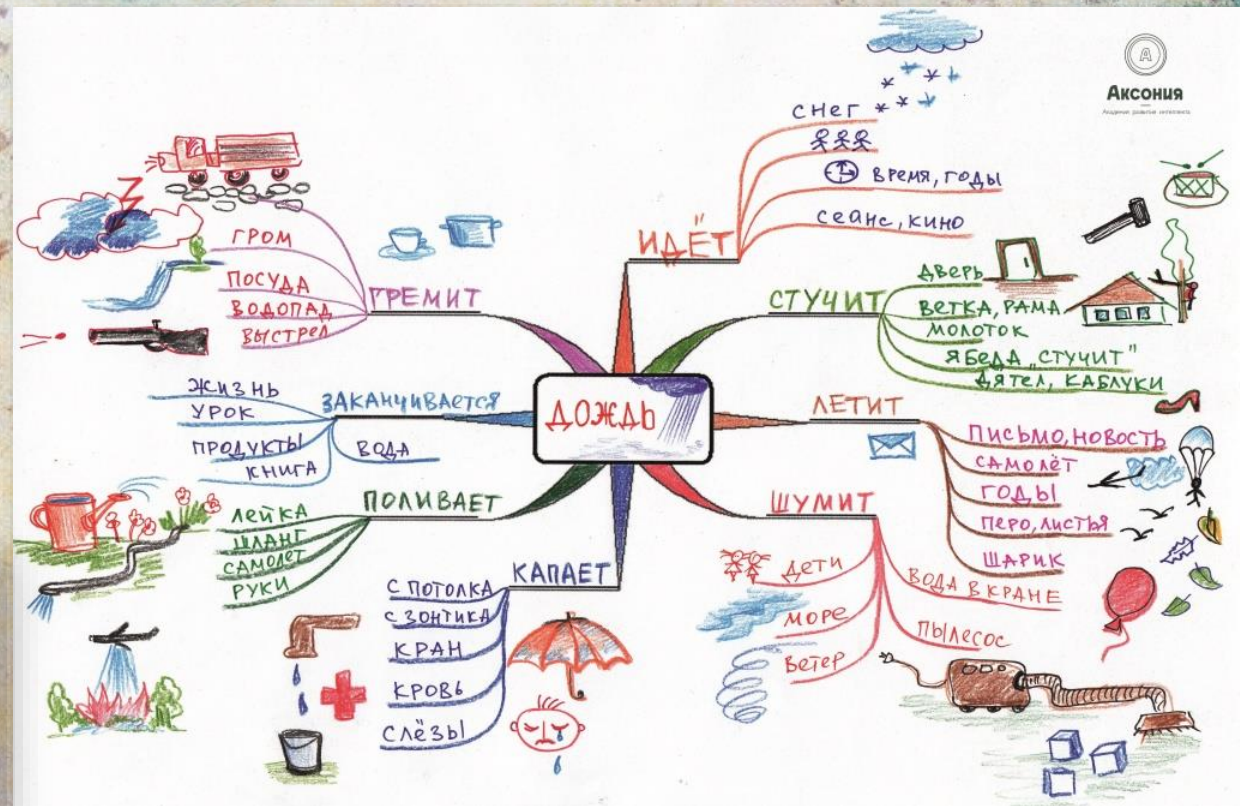 А
Аксония
Академия развития интеллекта
ДОЖДЬ
ИДЁТ
СНЕГ
ВРЕМЯ, ГОДЫ
СЕАНС, КИНО
СТУЧИТ
ДВЕРЬ
ВЕТКА, РАМА
МОЛОТОК
ЯБЕДА „СТУЧИТ"
ДЯТЕЛ, КАБЛУКИ
ЛЕТИТ
ПИСЬМО, НОВОСТЬ
САМОЛЁТ
ГОДЫ
ПЕРО, ЛИСТЬЯ
ШАРИК
ШУМИТ
ДЕТИ
МОРЕ
ВЕТЕР
ВОДА В КРАНЕ
ПЫЛЕСОС
КАПАЕТ
С ПОТОЛКА
С ЗОНТИКА
КРАН
КРОВЬ
СЛЁЗЫ
ПОЛИВАЕТ
ЛЕЙКА
ШЛАНГ
САМОЛЕТ
РУКИ
ЗАКАНЧИВАЕТСЯ
ЖИЗНЬ
УРОК
ПРОДУКТЫ
КНИГА
ВОДА
ГРЕМИТ
ГРОМ
ПОСУДА
ВОДОПАД
ВЫСТРЕЛ